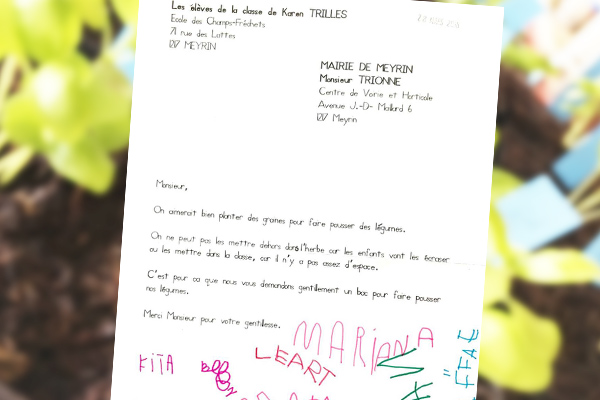 Les élèves de la classe de Karen TRILLES
Ecole des Champs-Fréchets
71 rue des Lattes
1217 MEYRIN
MAIRIE DE MEYRIN
Monsieur TRIONNE
Centre de Voirie et Horticole
Avenue J.-D- Maillard 6
1217 Meyrin
Monsieur,
On aimerait bien planter des graines pour faire pousser des légumes.
On ne peut pas les mettre dehors dans l'herbe car les enfants vont les écraser
ou les mettre dans la classe, car il n'y a pas assez d'espace.
C'est pour ça que nous vous demandons gentillement un bac pour faire pousser
nos légumes.
Merci Monsieur pour votre gentillesse.
MARIANA
KIIA
LEART